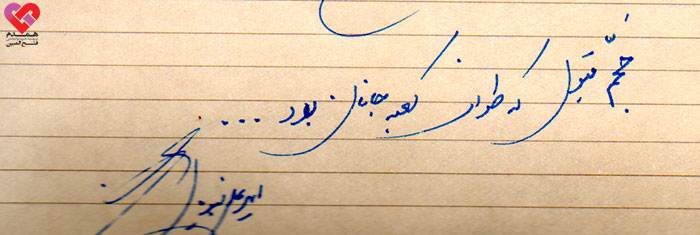 همدم
فتح المبین
حجّم قبول که طواف کعبه جانان بود ...
امیرعلی نبویان